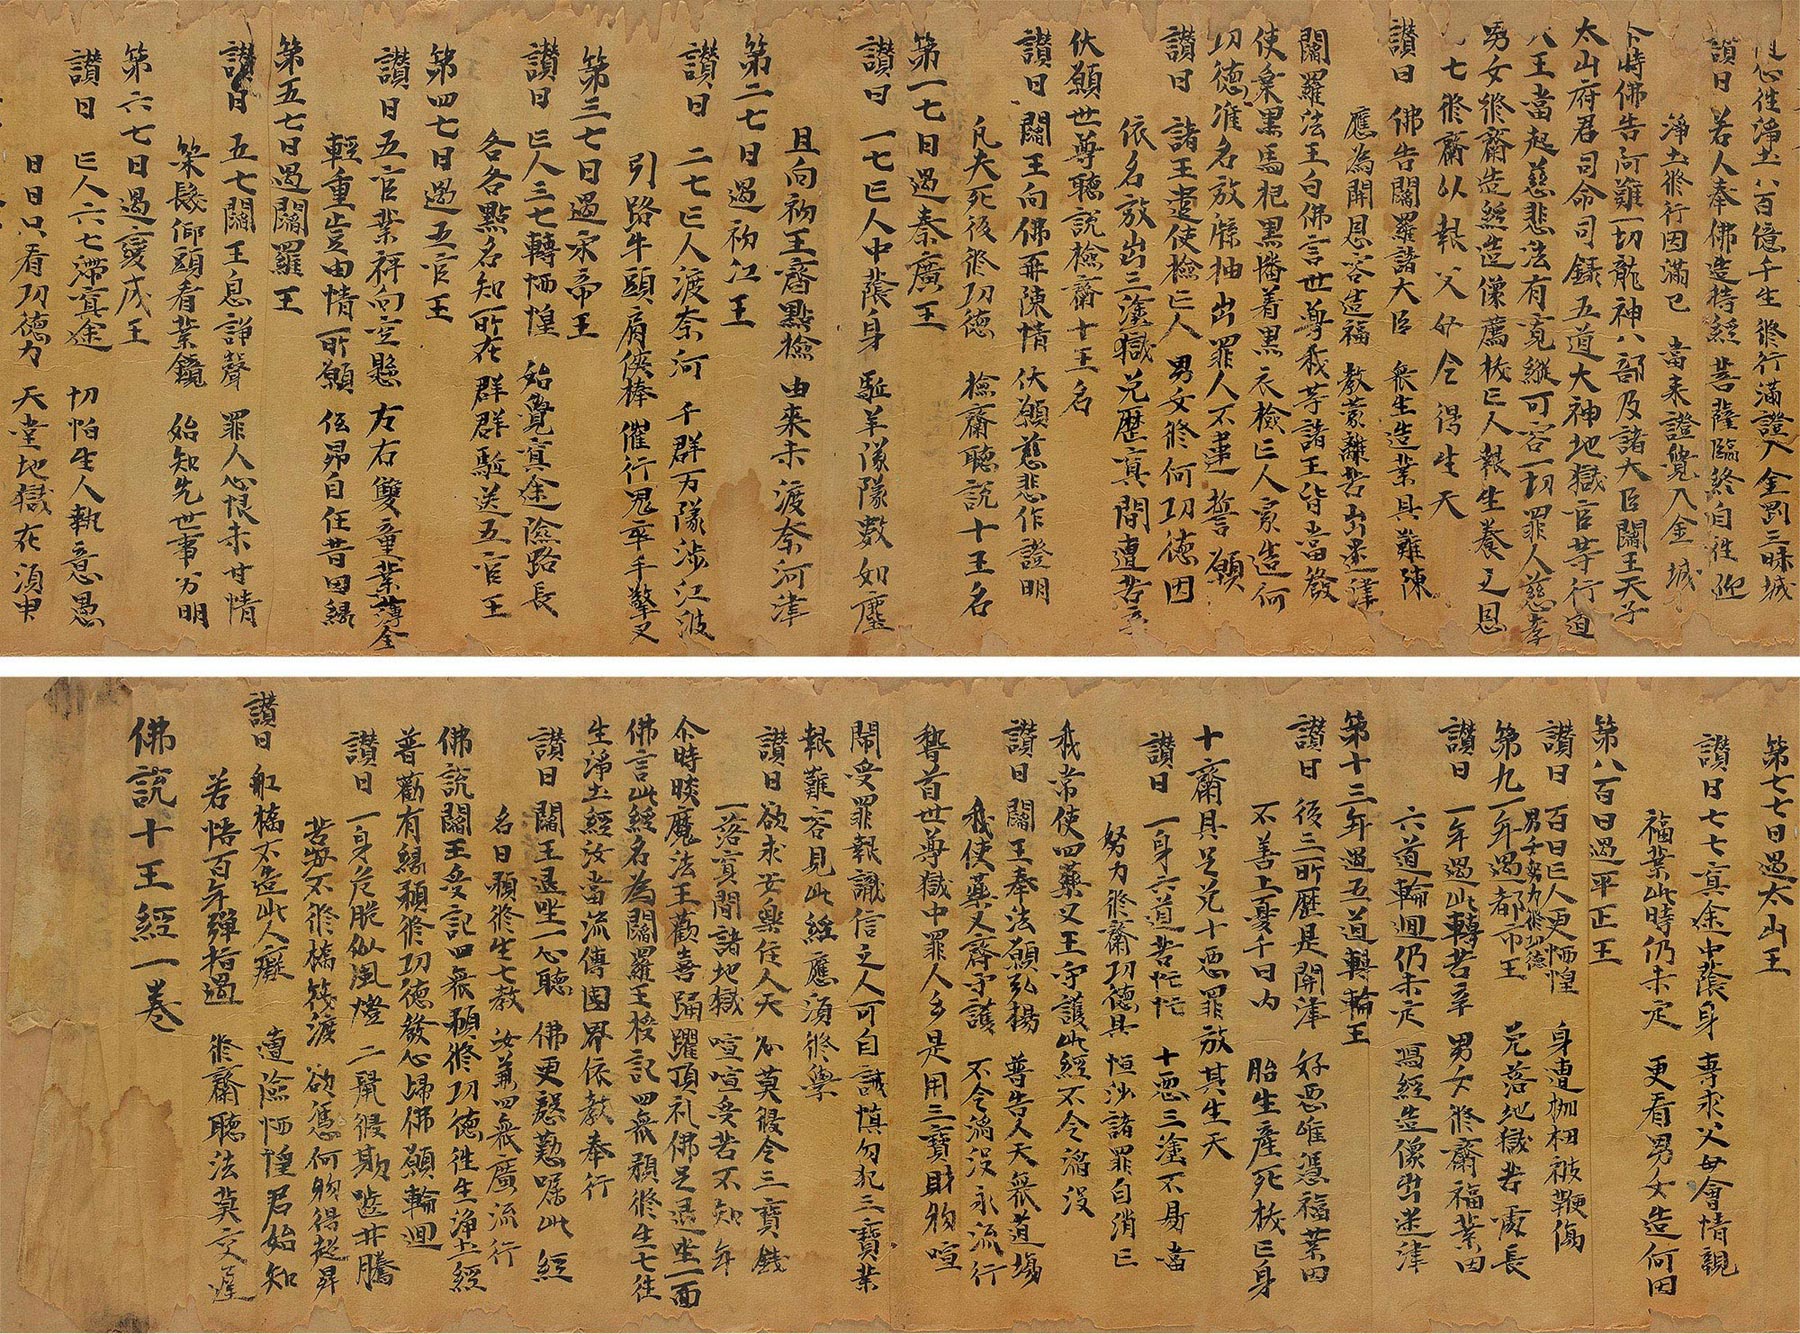 心往淨土八百億千生修行滿證入金剛三昧城
讃曰 若人奉佛造持經 菩薩臨終自往迎
淨土修行因滿已 當来證覺入金城
尒時佛告阿難一切龍神八部及諸大臣閻王天子
太山府君司命司録五道大神地獄官等行道
大王當起慈悲法有寛縱可容一切罪人慈孝
男女修齋造經造像薦拔亡人報生養之恩
七七修齋以報父母令得生天
讃曰 佛告閻羅諸大臣 衆生造業具難陳
應為開恩容造福 教蒙離苦出迷津
閻羅法王白佛言世尊我等諸王皆當發
使乗黒馬把黒幡着黒衣檢亡人家造何
功德准名放牒抽出罪人不違誓願
讃曰 諸王遣使檢亡人 男女修何功德因
依名放出三塗獄 免歷冥間遭苦辛
伏願世尊聽說檢齋十王名
讃曰 閻王向佛再陳情 伏願慈悲作證明
凡夫死後修功德 檢齋聽說十王名
第一七日過秦廣王
讃曰 一七亡人中蔭身 駈羊隊隊數如塵
且向初王齋點檢 由来未渡奈河津
第二七日過初江王
讃曰 二七亡人渡奈河 千群万隊涉江波
引路牛頭肩俠棒 催行鬼卒手擎叉
第三七日過宋帝王
讃曰 亡人三七轉恓惶 始覺冥途險路長
各各點名知所在 群群駈送五官王
第四七日過五官王
讃曰 五官業秤向空懸 左右雙童業薄全
輕重豈由情所願 低昂自任昔因緣
第五七日過閻羅王
讃曰 五七閻王息諍聲 罪人心恨未甘情
策髮仰頭看業鏡 始知先世事分明
第六七日過變成王
讃曰 亡人六七滯冥途 切怕生人執意愚
日日只看功德力 天堂地獄在湏申
第七七日過太山王
讃曰 七七冥途中蔭身 専求父母會情親
福業此時仍未定 更看男女造何因
第八百日過平正王
讃曰 百日亡人更恓惶 身遭枷杻被鞭傷
男女努力修功德 免落地獄苦處長
第九一年過都市王
讃曰 一年過此轉苦辛 男女修齋福業因
六道輪迴仍未定 寫經造像出迷津
第十三年過五道轉輪王
讃曰 後三所歷是開津 好惡唯憑福業因
不善上憂千日內 胎生産死拔亡身
十齋具足免十惡罪放其生天
讃曰 一身六道苦忙忙 十惡三塗不易當
努力修齋功德具 恒沙諸罪自消亡
我常使四藥叉王守護此經不令滔没
讃曰 閻王奉法願弘楊 普告人天衆道塲
我使藥叉齋守護 不令滔没永流行
稽首世尊獄中罪人多是用三寶財物喧
閙受罪報識信之人可自誡慎勿犯三寶業
報難容見此經應湏修學
讃曰 欲求安樂住人天 必莫侵令三寶錢
一落冥間諸地獄 喧喧受苦不知年
尒時㷔魔法王歡喜踊躍頂礼佛足退坐一面
佛言此經名為閻羅王授記四衆預修生七往
生淨土經汝當流傳國界依教奉行
讃曰 閻王退坐一心聽 佛更慇懃囑此經
名曰預修生七教 汝兼四衆廣流行
佛說閻王受記四衆預修功德往生淨土經
普勸有緣預修功德發心歸佛願輪迴
讃曰 一身危脆似風燈 二鼠侵欺嚙井騰
苦海不修橋筏渡 欲憑何物得超昇
讃曰 舡橋不造此人癡 遭險恓惶君始知
若悟百年彈指過 修齋聽法莫交遲
佛說十王經一卷